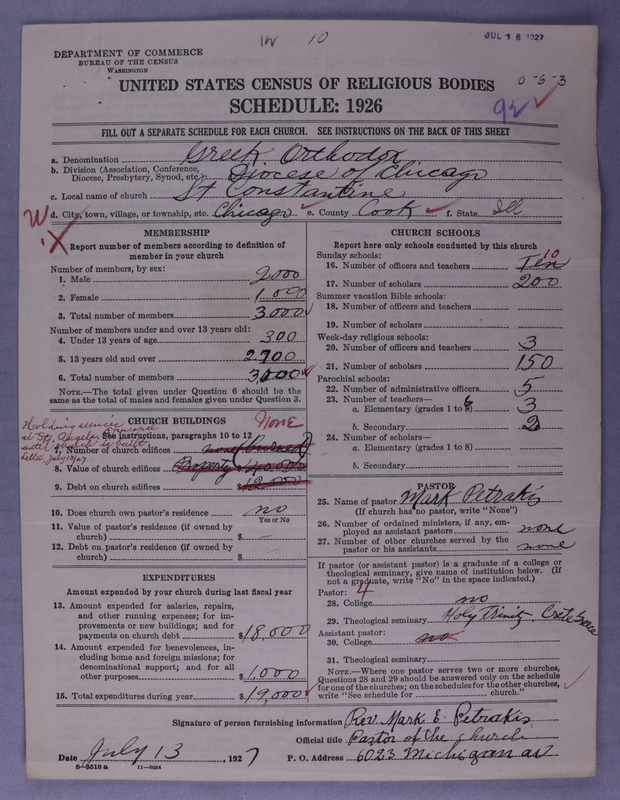 12 10 JUL 18 1927
DEPARTMENT OF COMMERCE
BUREAU OF THE CENSUS
WASHINGTON
UNITED STATES CENSUS OF RELIGIOUS BODIES
0-6-3
SCHEDULE: 1926
92
FILL OUT A SEPARATE SCHEDULE FOR EACH CHURCH. SEE INSTRUCTIONS ON THE BACK OF THIS SHEET
a. Denomination Greek Orthodox
b. Division (Association, Conference, Diocese, Presbytery, Synod, etc.) Diocese of Chicago
c. Local name of church St Constantine
d. City, town, village, or township, etc. Chicago e. County Cook f. State Ill
W X
MEMBERSHIP
Report number of members according to definition of
member in your church
Number of members, by sex:
1. Male 2000
2. Female 1000
3. Total number of members 3000
Number of members under and over 13 years old:
4. Under 13 years of age 300
5. 13 years old and over 2700
6. Total number of members 3000
NOTE.—The total given under Question 6 should be
same as the total of males and females given under Question 3.
CHURCH BUILDINGS None
Holding services at St. Episcopal until church is built letter July 19/27
See instructions, paragraphs 10 to 12
7. Number of church edifices
8. Value of church edifices Property $
9. Debt on church edifices $12,000
10. Does church own pastor's residence? no
Yes or No
11. Value of pastor's residence (if owned by
church) $ –
12. Debt on pastor's residence (if owned by
church) $ –
EXPENDITURES
Amount expended by your church during last fiscal year
13. Amount expended for salaries, repairs,
and other running expenses; for im-
provements or new buildings; and for
payments on church debt $18,000
14. Amount expended for benevolences, in-
cluding home and foreign missions; for
denominational support; and for all
other purposes $1,000
15. Total expenditures during year $19,000
CHURCH SCHOOLS
Report here only schools conducted by this church
Sunday schools:
16. Number of officers and teachers Ten 10
17. Number of scholars 200
Summer vacation Bible schools:
18. Number of officers and teachers
19. Number of scholars
Week-day religious schools:
20. Number of officers and teachers 3
21. Number of scholars 150
Parochial schools:
22. Number of administrative officers 5
23. Number of teachers—
a. Elementary (grades 1 to 8) 6 3
b. Secondary 2
24. Number of scholars—
a. Elementary (grades 1 to 8)
b. Secondary
PASTOR
25. Name of pastor Mark Petrakis
(If church has no pastor, write "None")
26. Number of ordained ministers, if any, em-
ployed as assistant pastors none
27. Number of other churches served by the
pastor or his assistants none
If pastor (or assistant pastor) is a graduate of a college or
theological seminary, give name of institution below. (If
not a graduate, write "No" in the space indicated.)
Pastor: 4
28. College no
29. Theological seminary Holy Trinity Crete Greece
Assistant pastor:
30. College no
31. Theological seminary
NOTE.—Where one pastor serves two or more churches,
Questions 28 and 29 should be answered only on the schedule
for one of the churches; on the schedules for the other churches,
write "See schedule for church."
Signature of person furnishing information Rev. Mark E. Petrakis
Official title Pastor of the church
Date July 13, 1927 P. O. Address 6023 Michigan av
8—5518a 11—9024